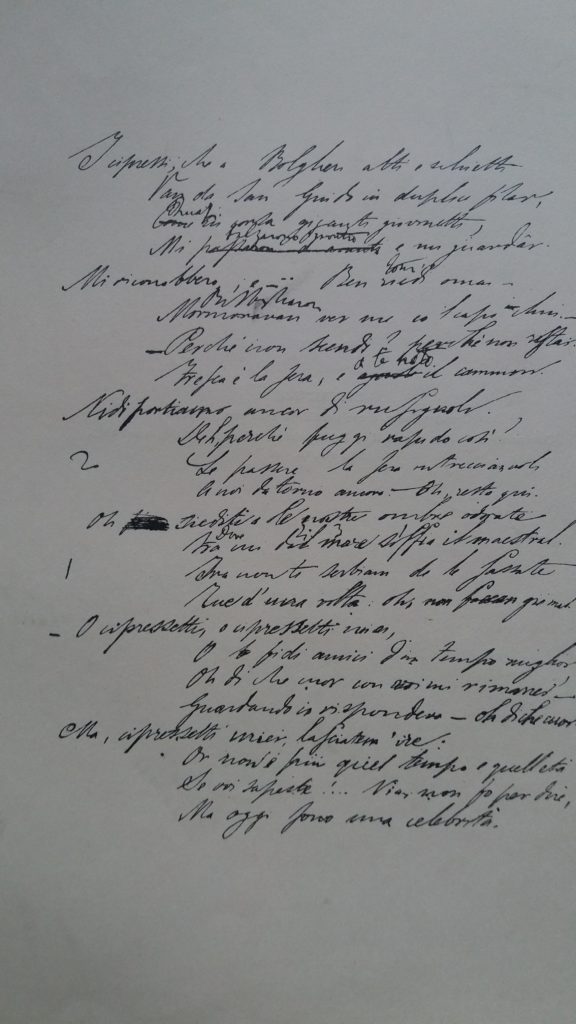 I cipressi, che a Bolgheri alti e schietti
Van da San Guido in duplice filar,
Quasi
Come in corsa giganti giovinetti,
Mi e mi guardâr.
Mi riconobbero, e — Ben torni omai —
Bisbigliaron
Mormoravan ver me co 'l capo chin. —
— Perché non scendi? perché non ristai?
a te noto
Fresca è la sera, e il cammin.
Nidi portiamo ancor di rusignoli.
Deh, perché fuggi rapido così?
2 Le passere la sera intreccian voli
A noi d'intorno ancora — Oh, resta qui.
Oh siediti a le nostre ombre odorate
Ove
dal mare soffia il maestral.
1 Ira non ti serbiam de le sassate
Tue d'una volta: oh, non
— O cipressetti, o cipressetti miei,
O fidi amici d'un tempo miglior
Oh di che cuor con voi mi rimarrei —
Guardando io rispondeva — oh di che cuor
Ma, cipressetti miei, lasciatem' ire:
Or non è più quel tempo e quell'età
Se voi sapeste!... Via, non fo per dire,
Ma oggi sono una celebrità.